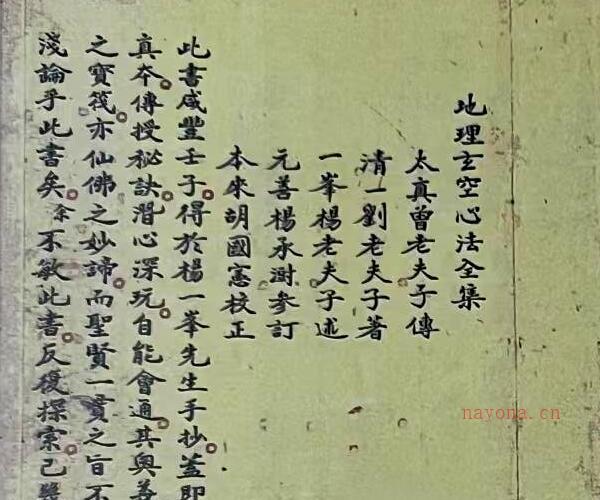 地理玄空心法全集
太真曾老夫子傳
清一劉老夫子著
一峯楊老夫子述
元善楊承澍參訂
本來胡國憲校正
此書咸豐壬子得於楊一峯先生手抄蓋即
真夲傳授秘訣潛心深玩自能會通其與
之寶筏亦仙佛之妙諦而聖賢一貫之旨不
淺論乎此書矣余不敏此書反復探索已
nayona.cn